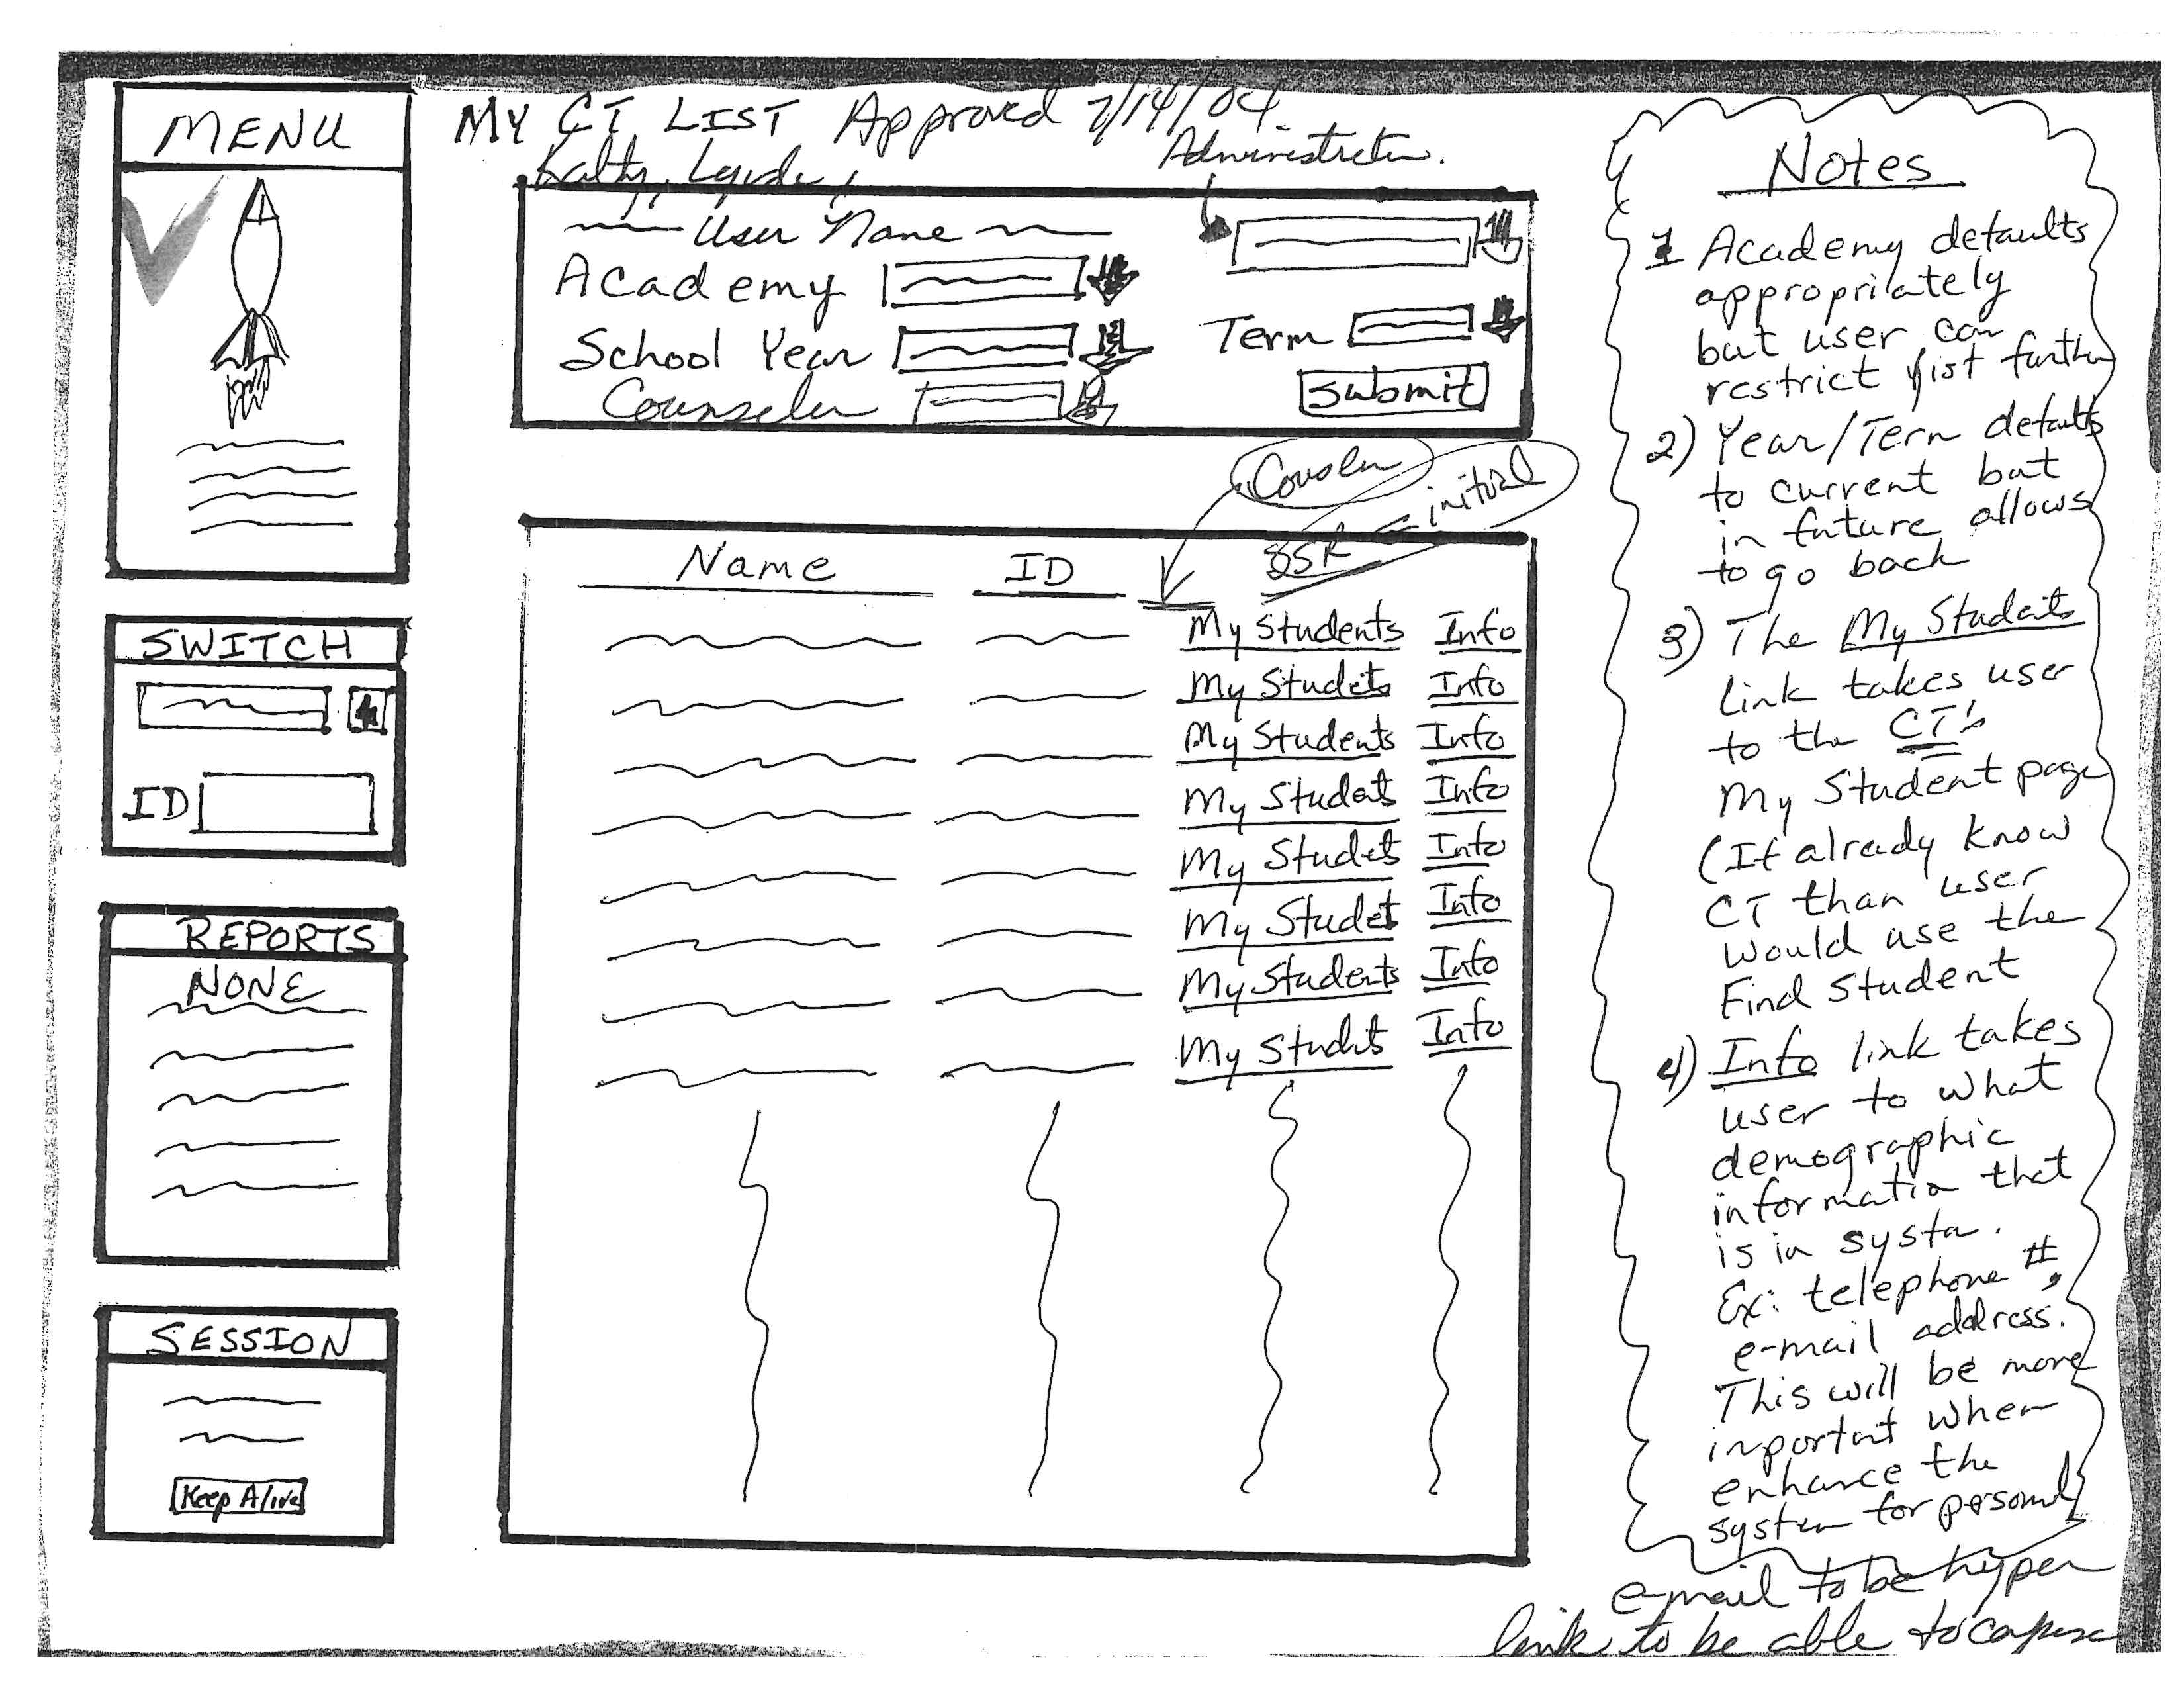 MENU
MY CT LIST Approved 7/14/04
Administrator.
User Name
Academy
School Year
Term
Counselor
Submit
initial
Name ID SSR
My Students Info
My Studets Info
My Students Info
My Students Info
My Studets Info
My Studet Info
My Students Info
My Studets Info
SWITCH
ID
REPORTS
NONE
SESSION
Keep Alive
Notes
1 Academy defaults
appropriately
but user can
restrict list further
2) Year/Term defaults
to current but
in future allows
to go back
3) The My Students
link takes user
to the CT's
My Student page
(If already know
CT than user
would use the
Find Student
4) Info link takes
user to what
demographic
information that
is in system.
Ex: telephone #,
e-mail address.
This will be more
important when
enhance the
system for personal
e-mail to be hyper
link to be able to